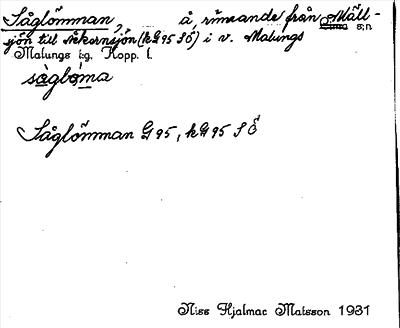 Såglömman, å, rinnande från Mäll-
sjön till Åkersjön (kG95 SÖ) i v. Malungs s:n
Malungs s:g. Kopp. l.
såglo̱ma
Såglömman G 95, kG 95 S Ö
Nils Hjalmar Matsson 1931